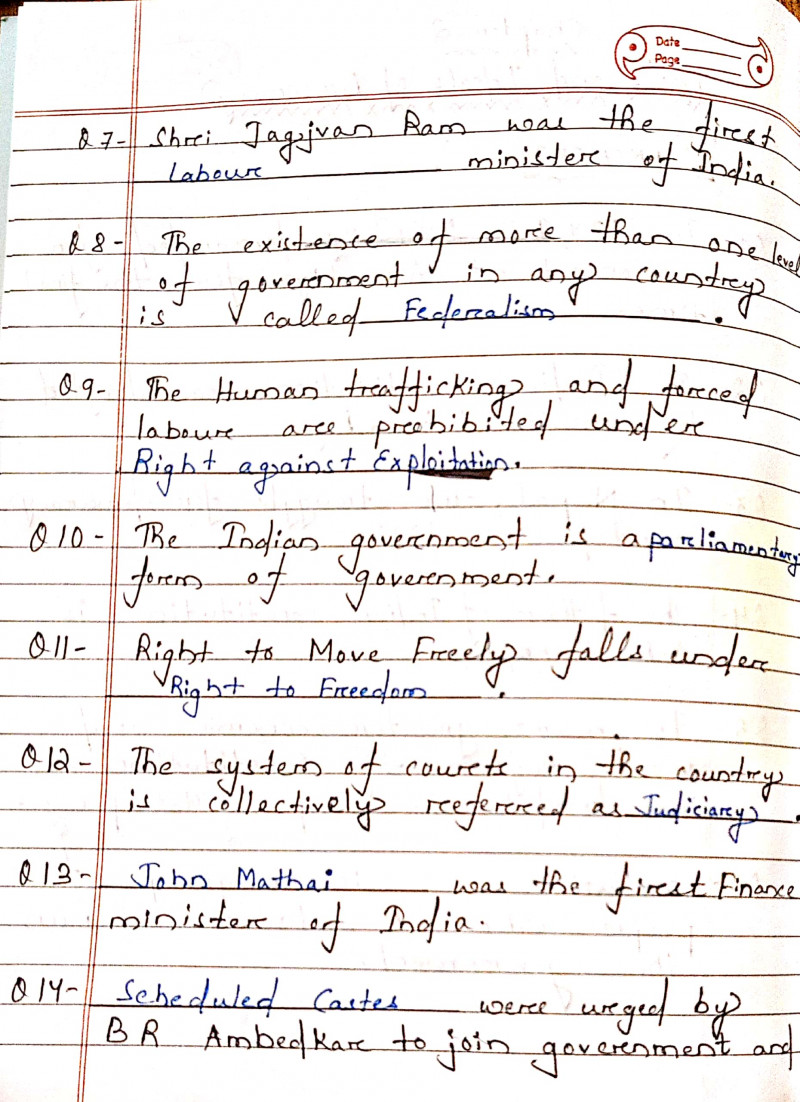 Date
Page
Q 7- Shri Jagjivan Ram was the first
Labour ministere of India.
Q 8- The existence of more than one level
of government in any country
is called Federalism .
Q 9- The Human trafficking and forced
labour are prohibited under
Right against Exploitation.
Q 10- The Indian government is a parliamentary
form of government.
Q 11- Right to Move Freely falls under
Right to Freedom .
Q 12- The system of courts in the country
is collectively referred as Judiciary .
Q 13- John Mathai was the first Finance
minister of India.
Q 14- Scheduled Castes were urged by
B R Ambedkar to join government and